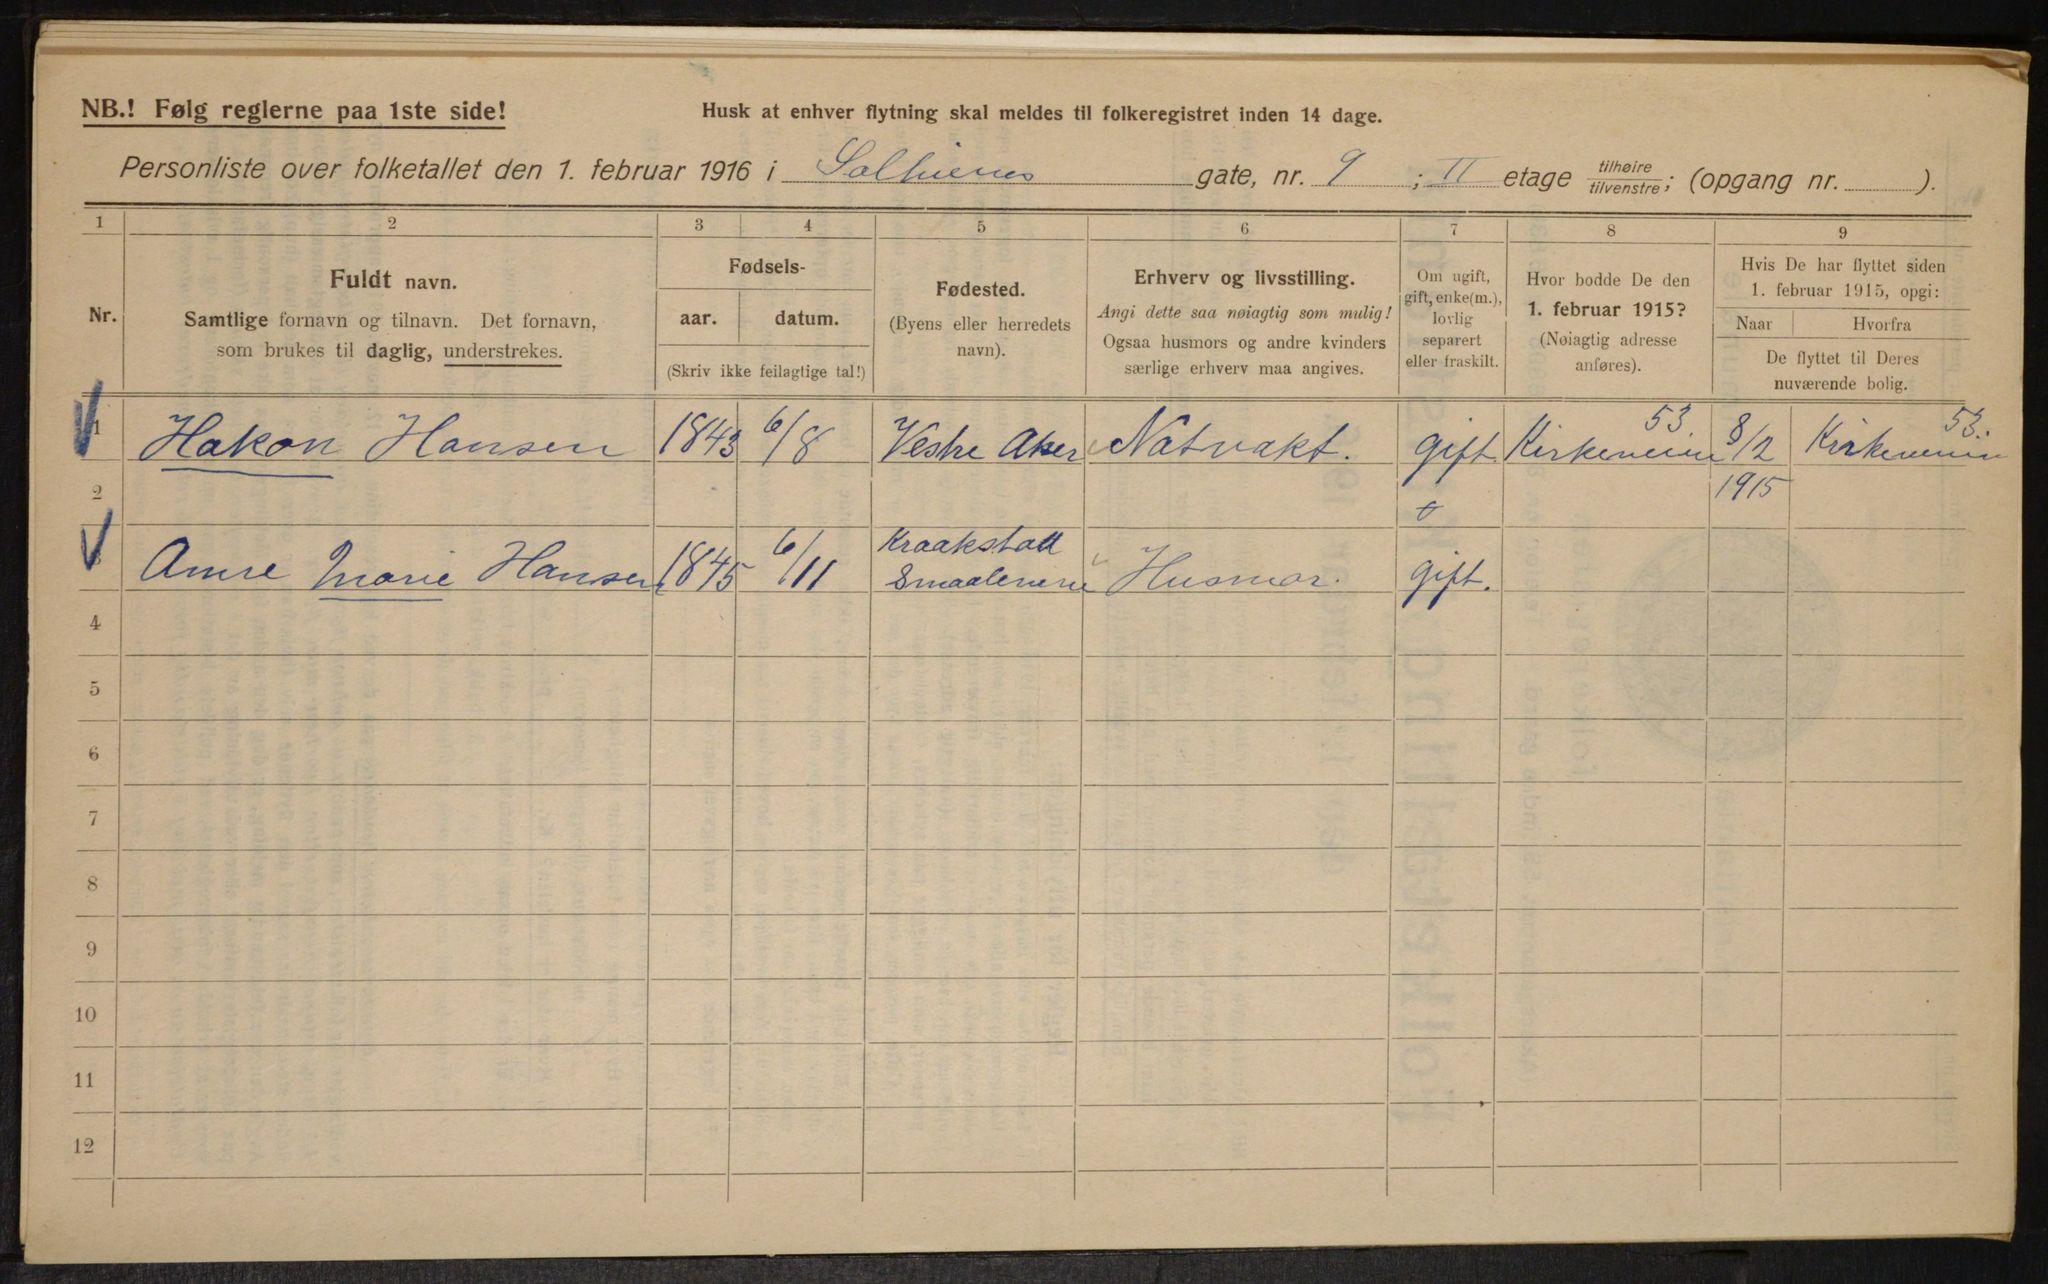 NB.! Følg reglerne paa 1ste side!
Husk at enhver flytning skal meldes til folkeregistret inden 14 dage.
Personliste over folketallet den 1. februar 1916 i gate, nr. 9 ; II etage tilhøire tilvenstre; (opgang nr. ).
1 2 3 4 5 6 7 8 9
Nr.
Fuldt navn.
Samtlige fornavn og tilnavn. Det fornavn,
som brukes til daglig, understrekes.
Fødsels-
aar. datum.
(Skriv ikke feilagtige tal!)
Fødested.
(Byens eller herredets
navn).
Erhverv og livsstilling.
Angi dette saa nøiagtig som mulig!
Ogsaa husmors og andre kvinders
særlige erhverv maa angives.
Om ugift,
gift, enke(m.),
lovlig
separert
eller fraskilt.
Hvor bodde De den
1. februar 1915?
(Nøiagtig adresse
anføres).
Hvis De har flyttet siden
1. februar 1915, opgi:
Naar Hvorfra
De flyttet til Deres
nuværende bolig.
1 Hakon Hansen 1843 6/8 Vestre Aker Natvakt. gift Kirkeveien 53 8/2 Kirkeveien 53.
2 1915
3 Anne Marie Hansen 1845 6/11 Kraakstad
Smaalenene Husmor. gift.
4
5
6
7
8
9
10
11
12